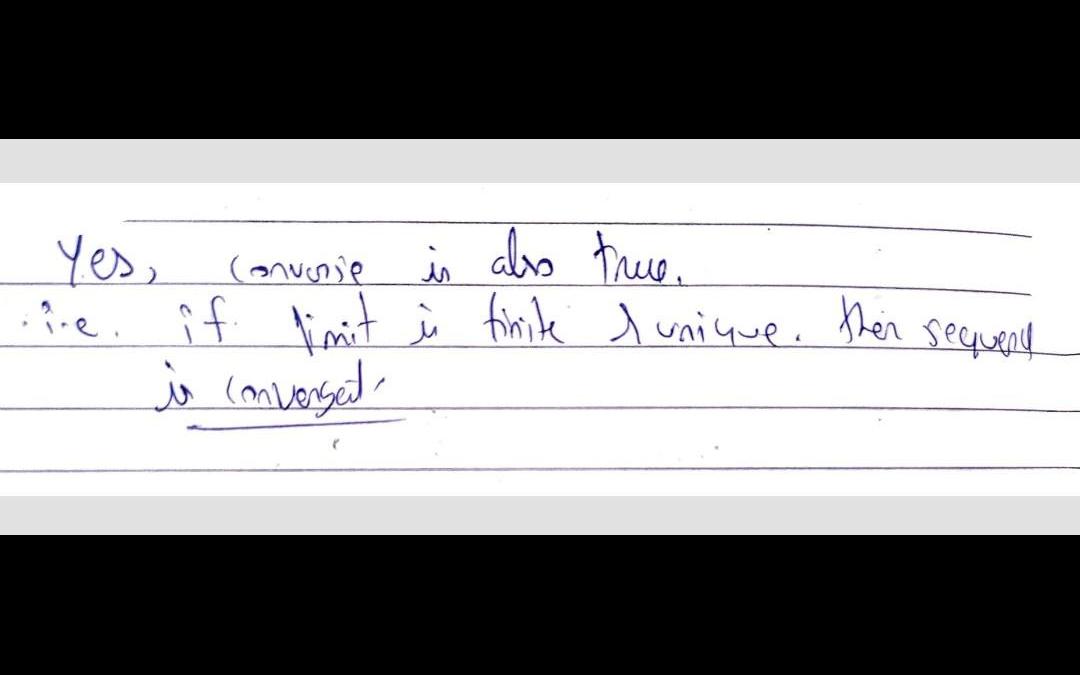 Yes, converse is also true.
i.e. if limit is finite & unique. then sequence
is convergent.